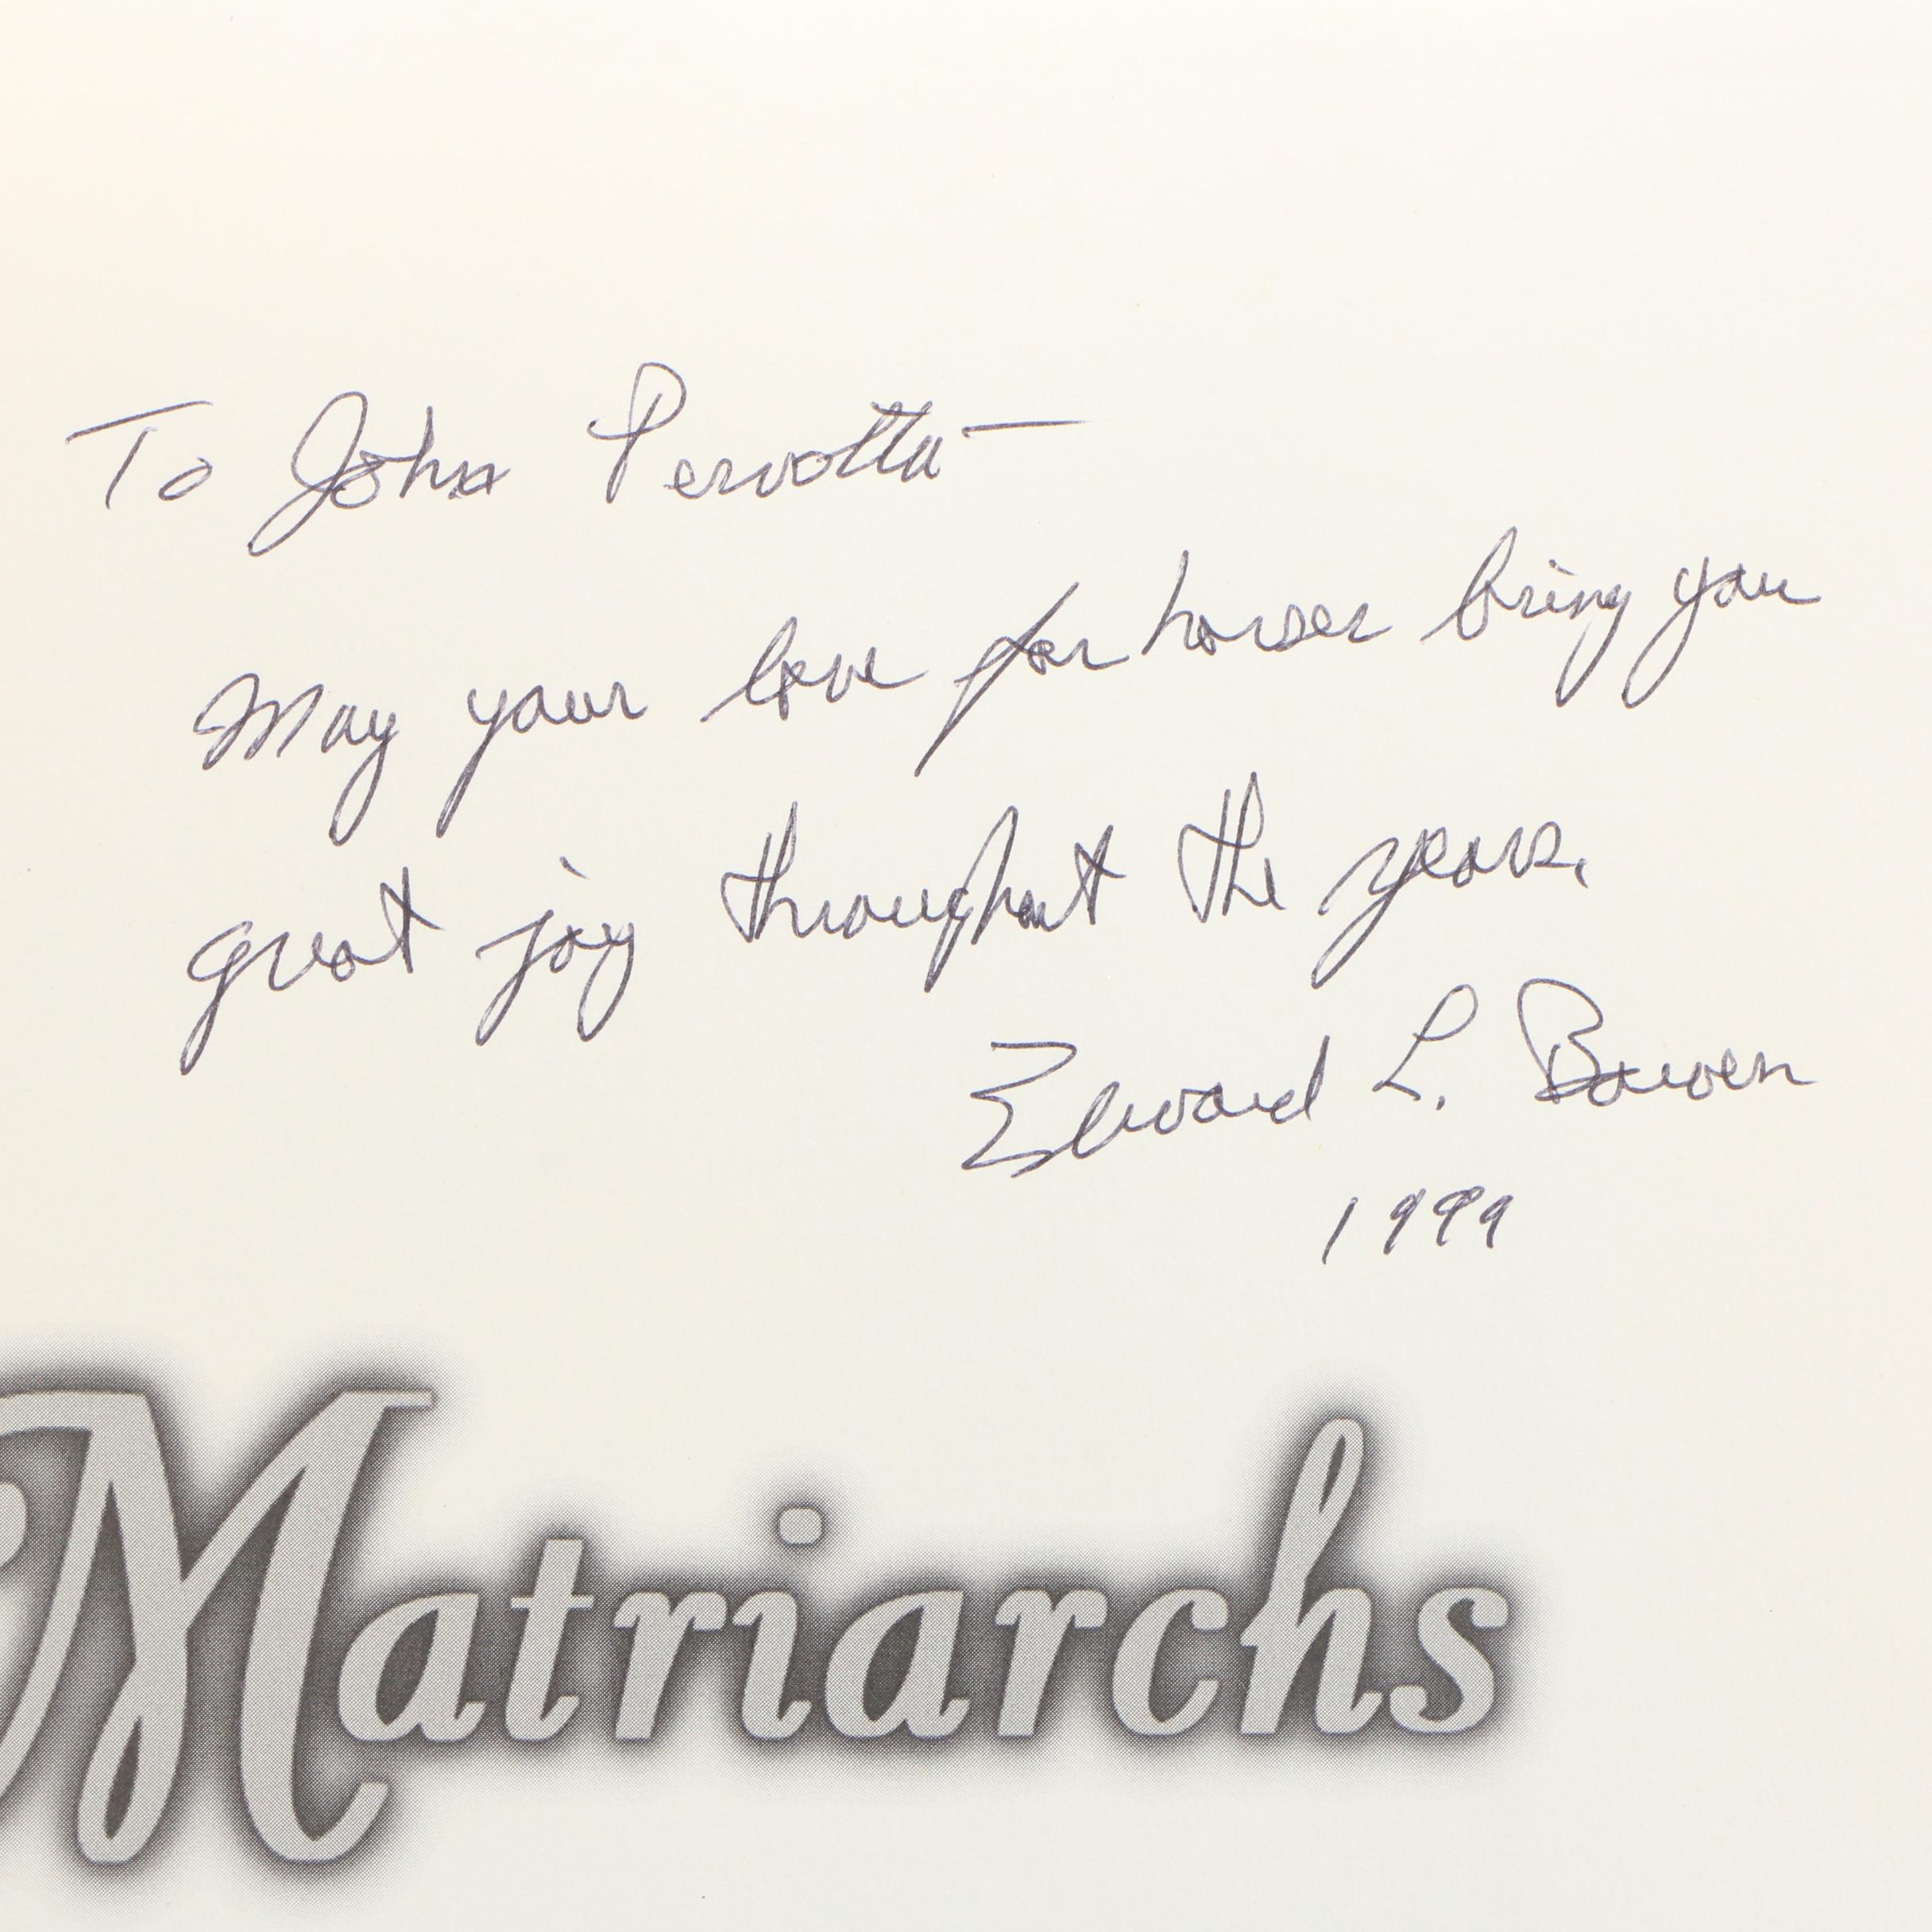 To John Pervotta—
May your love for horses bring you
great joy throughout the years.
Edward L. Bowen
1999
Matriarchs